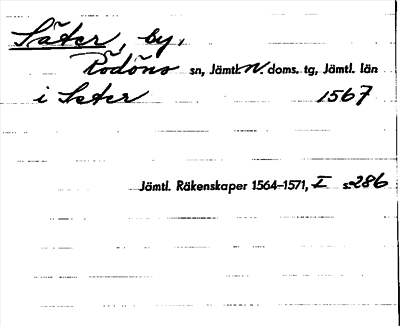 Säter, by,
Rödöns sn, Jämtl. N. doms. tg, Jämtl. län
i Seter 1567
Jämtl. Räkenskaper 1564–1571, I s. 286